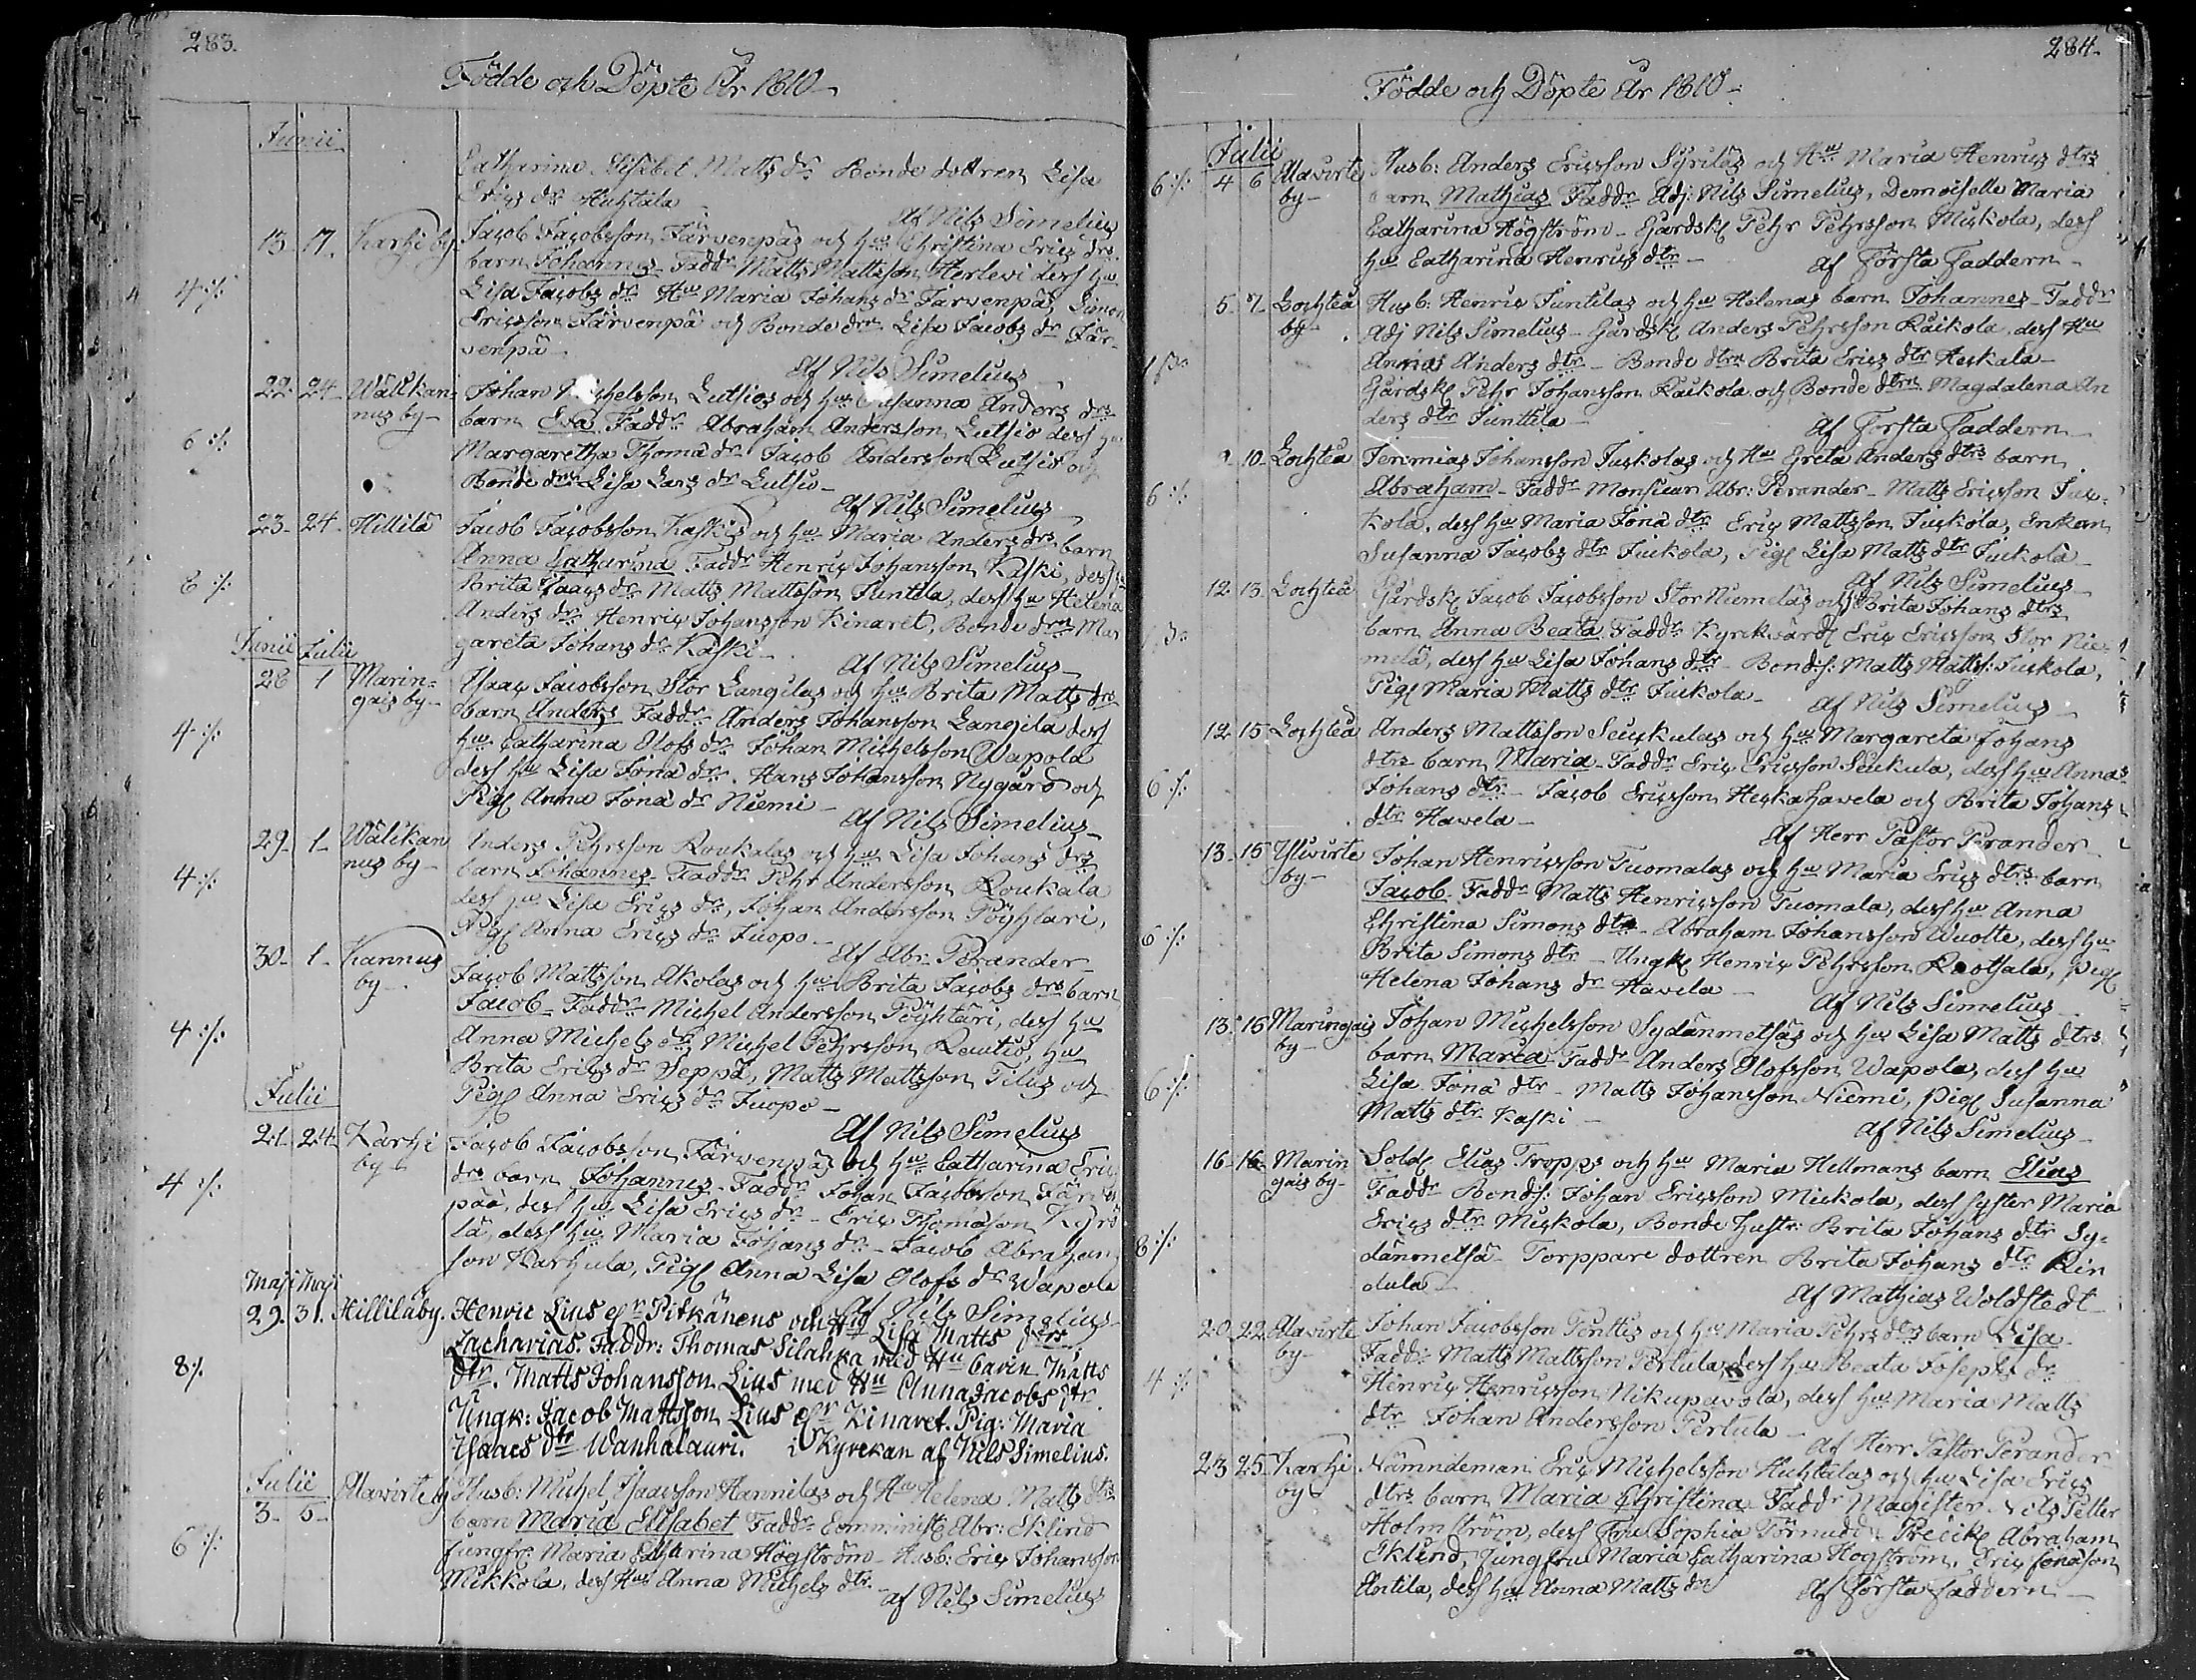 283.
Födde och Döpte År 1810
Junii
Catharina Elisabet Matts dr Bonde dottren Lisa
Erics dr Huhtala
af Nils Simelius
13. 17. Karhi by Jacob Jacobsson Järvenpäs och hu Christina Erics drs
barn Johannes Faddr Matts Mattsson Herlevi dess hu
4 ./. Lisa Jacobs dr Hu Maria Johans dr Järvenpä, Simon
Ericsson Järvenpä och Bonde drn Lisa Jacobs dr Jär-
venpä
Af Nils Simelius
22. 24. Wälikan Johan Michelsson Lutsios och hu Susanna Anders drs
nus by barn Eva Faddr Abraham Andersson Lutsio dess hu
6 ./. Margaretha Thoma dr Jacob Andersson Lutsio och
Bonde drn Lisa Lars dr Lutsio
Af Nils Simelius
23. 24. Hillilä Jacob Jacobsson Kaskis och hu Maria Anders drs barn
Anna Catharina Faddr Henric Johansson Kaski, dess hu
8 ./. Brita Isaacs dr Matts Mattsson Juntila, dess hu Helena
Anders dr Henric Johansson Kinaret, Bonde drn Mar
gareta Johans dr Kaski
Af Nils Simelius
Junii Julii
28 1 Marin= Isaac Jacobsson Stor Langilas och hu Brita Matts drs
gais by barn Anders Faddr Anders Johansson Langila dess
4 ./. hu Catharina Olofs dr Johan Michelsson Wapola
dess hu Lisa Jona dr. Hans Johansson Nygård och
Pig Anna Jona dr Niemi
Af Nils Simelius
29. 1 Wälikan Anders Pehrsson Roukalas och hu Lisa Johans drs
nus by barn Johannes Faddr Pehr Andersson Roukala
4 ./. dess hu Lisa Erics dr, Johan Andersson Pöyhtari,
Pig Anna Erics dr Juopo
Af Abr. Perander
30. 1. Kannus Jacob Mattsson Akolas och hu Brita Jacobs drs barn
by Jacob Faddr Michel Andersson Pöyhtäri, dess hu
4 ./. Anna Michels dr, Michel Pehrsson Rautio, hu
Brita Erics dr Seppä, Matts Mattsson Tilus och
Pig Anna Erics dr Juopo
Af Nils Simelius
Julii
21. 24. Karhi Jacob Jacobsson Järvenpäs och hu Catharina Eric
by drs barn Johannes Faddr Johan Jacobsson Järven
4 ./. pää, dess hu Lisa Erics dr Eric Thomasson Kyrö
lä, dess hu Maria Johans dr Jacob Abraham
son Karhula, Pig Anna Lisa Olofs dr Wapola
Af Nils Simelius
Maji Maji
29. 31. Hilliläby. Henric Lius el:r Pitkänens och Hu Lisa Matts dtrs
Zacharias. Faddr: Thomas Silahka med Hu Carin Matts
8 ./. dtr. Matts Johansson Lius med Hu Anna Jacobs dtr.
Ungk: Jacob Mattsson Lius el:r Kinaret. Pig: Maria
Isaacs dtr Wanhalauri. i Kyrckan af Nils Simelius.
Julii
3. 5 Alavirte by Husb: Michel Isaacsson Hannilas och Hu Helena Matts dtrs
barn Maria Elisabet Faddr Comminist Abr: Eklind
6 ./. Jungfr: Maria Catharina Högström Husb: Eric Johansson
Mikkola, dess Hu Anna Michels dtr.
af Nils Simelius
284.
Födde och Döpte År 1810
Julii
6 ./. 4 6 Alavirte Husb: Anders Ericsson Syriläs och Hu Maria Henrics dtrs
by barn Mathias Faddr Adj: Nils Simelius, Demoiselle Maria
Catharina Högström Gårdsk Pehr Pehrsson Mickola, dess
hu Catharina Henrics dtr
af Första Faddern
5. 7. Lochteå Husb: Henric Juntilas och hu Helenas barn Johannes Faddr
by Adj Nils Simelius Gårdsk Anders Pehrsson Räikola, dess Hu
Annas Anders dtr Bonde dtrn Brita Erics dtr Heskala
Gårdsk Pehr Johansson Räikola och Bonde dtrn Magdalena An
ders dtr Junttila
af Första Faddern
9. 10. Lochteå Jeremias Johansson Juckolas och Hu Greta Anders dtrs barn
6 ./. Abraham Faddr Monsieur Abr: Perander Matts Ericsson Juc-
kola, dess hu Maria Jona dtr Eric Mattsson Juckola, Enkan
Susanna Jacobs dtr Juckola, Pig Lisa Matts dtr Juckola
af Nils Simelius
12. 13. Lochteå Gårdsk Jacob Jacobsson Stor Niemeläs och Brita Johans dtrs
barn Anna Beata Faddr Kyrckvärd Eric Ericsson Stor Nie=
melä, dess hu Lisa Johans dtr Bonds: Matts Matts: Juckola,
Pig Maria Matts dtr Juckola
af Nils Simelius
12. 15 Lochteå Anders Mattsson Seuckulas och hu Margareta Johans
dtrs barn Maria Faddr Eric Ericsson Seukula, dess hu Annas
6 ./. Johans dtr Jacob Ericsson Heskahavela och Brita Johans
dtr Havela
af Herr Pastor Perander
13. 15 Yliwirte Johan Henricsson Tuomalas och hu Maria Erics dtrs barn
by Jacob Faddr Matts Henricsson Tuomala, dess hu Anna
6 ./. Christina Simons dtr Abraham Johansson Wuolte, dess hu
Brita Simons dtr Ungk Henric Pehrsson Rootsala, pig
Helena Johans dr Havela
af Nils Simelius
13. 16 Maringais Johan Michelsson Sydänmetsäs och hu Lisa Matts dtrs
by barn Maria Faddr Anders Olofsson Wapola, dess hu
6 ./. Lisa Jona dtr Matts Johansson Niemi, pig Susanna
Matts dtr Kaski
af Nils Simelius
16. 16. Marin Sold Elias Tropps och hu Maria Hellmans barn Elias
gais by Faddr Bonds: Johan Ericsson Mickola, dess syster Maria
8 ./. Erics dtr Mickola, Bonde hustr: Brita Johans dtr Sy=
dänmetsä Torppare dottren Brita Johans dtr Rin
dula
af Mathias Woldstedt
20 22 Alavirte Johan Jacobsson Penttis och hu Maria Pehrs dtrs barn Lisa
by Faddr Matts Mattsson Pertula, dess hu Beata Josephs dr
4 ./. Henric Henricsson Nikupavola, dess hu Maria Matts
dtr Johan Andersson Pertula
af Herr Pastor Perander
23. 25. Karhi Nämndeman Eric Michelsson Huhtalas och hu Lisa Erics
by dtrs barn Maria Christina Faddr Magister Nils Petter
Holmström, dess Fru Sophia Törnudd Predk Abraham
Eklind, Jungfru Maria Catharina Högström, Eric Jonasson
Antila, dess hu Anna Matts dr
af Första Faddern